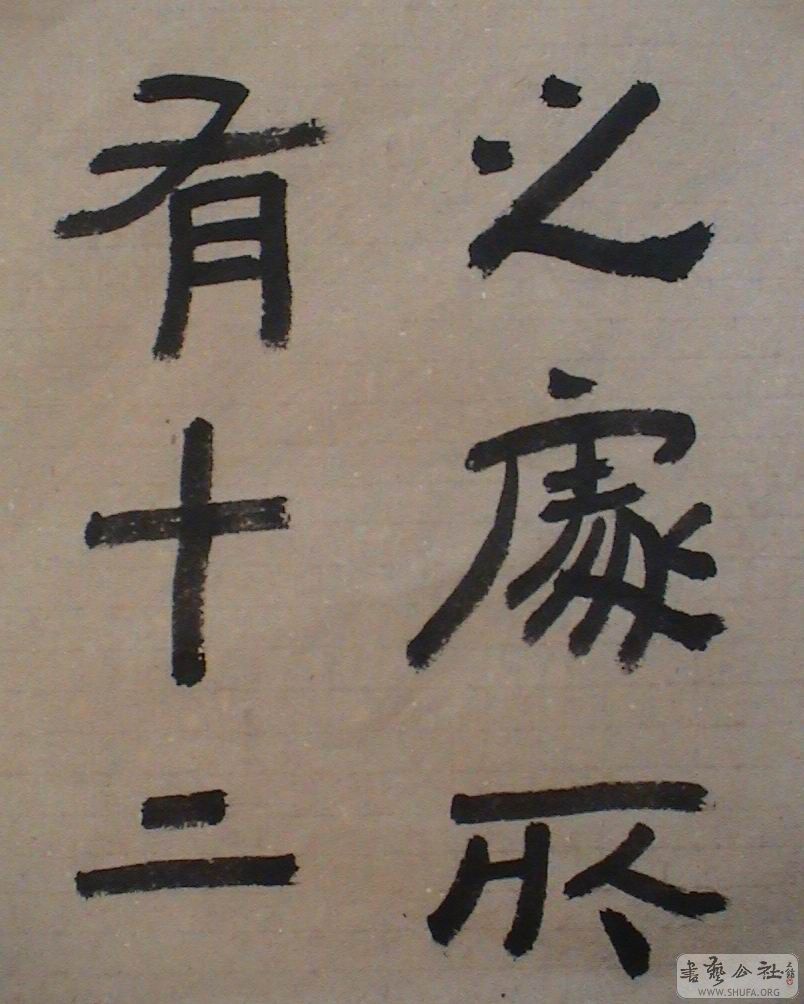 之處所
有十二
書藝公社
WWW.SHUFA.ORG